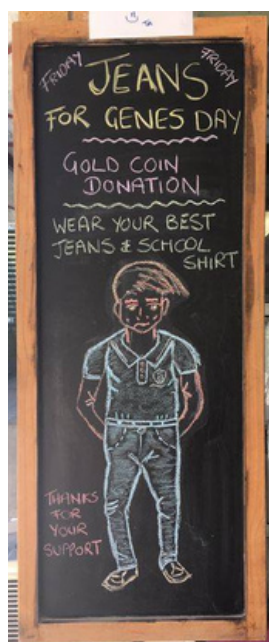 FRIDAY
FRIDAY
JEANS
FOR GENES DAY
GOLD COIN
DONATION
WEAR YOUR BEST
JEANS & SCHOOL
SHIRT
THANKS
FOR
YOUR
SUPPORT